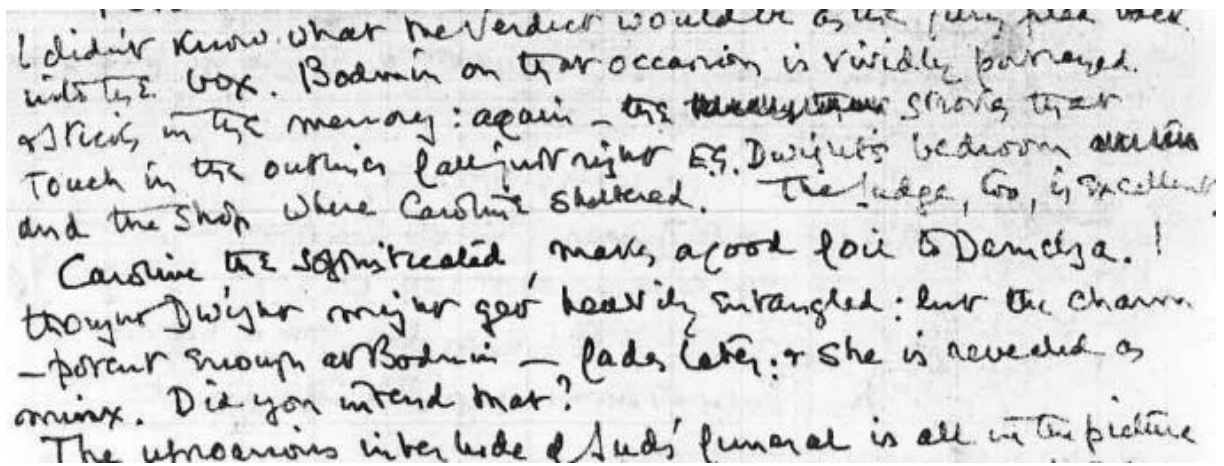 I didn't know what the verdict would be as the jury filed back
into the box. Bodmin on that occasion is vividly portrayed
& sticks in the memory: again – the strokes that
touch in the outlines fall just right E.G. Dwight's bedroom
and the shop where Caroline sheltered. The judge, too, is excellent.
Caroline the sophisticated, makes a good foil to Demelza. I
thought Dwight might get heavily entangled: but the charm
– potent enough at Bodmin – fades later: & she is revealed as
minx. Did you intend that?
The uproarious interlude of Jud's funeral is all in the picture